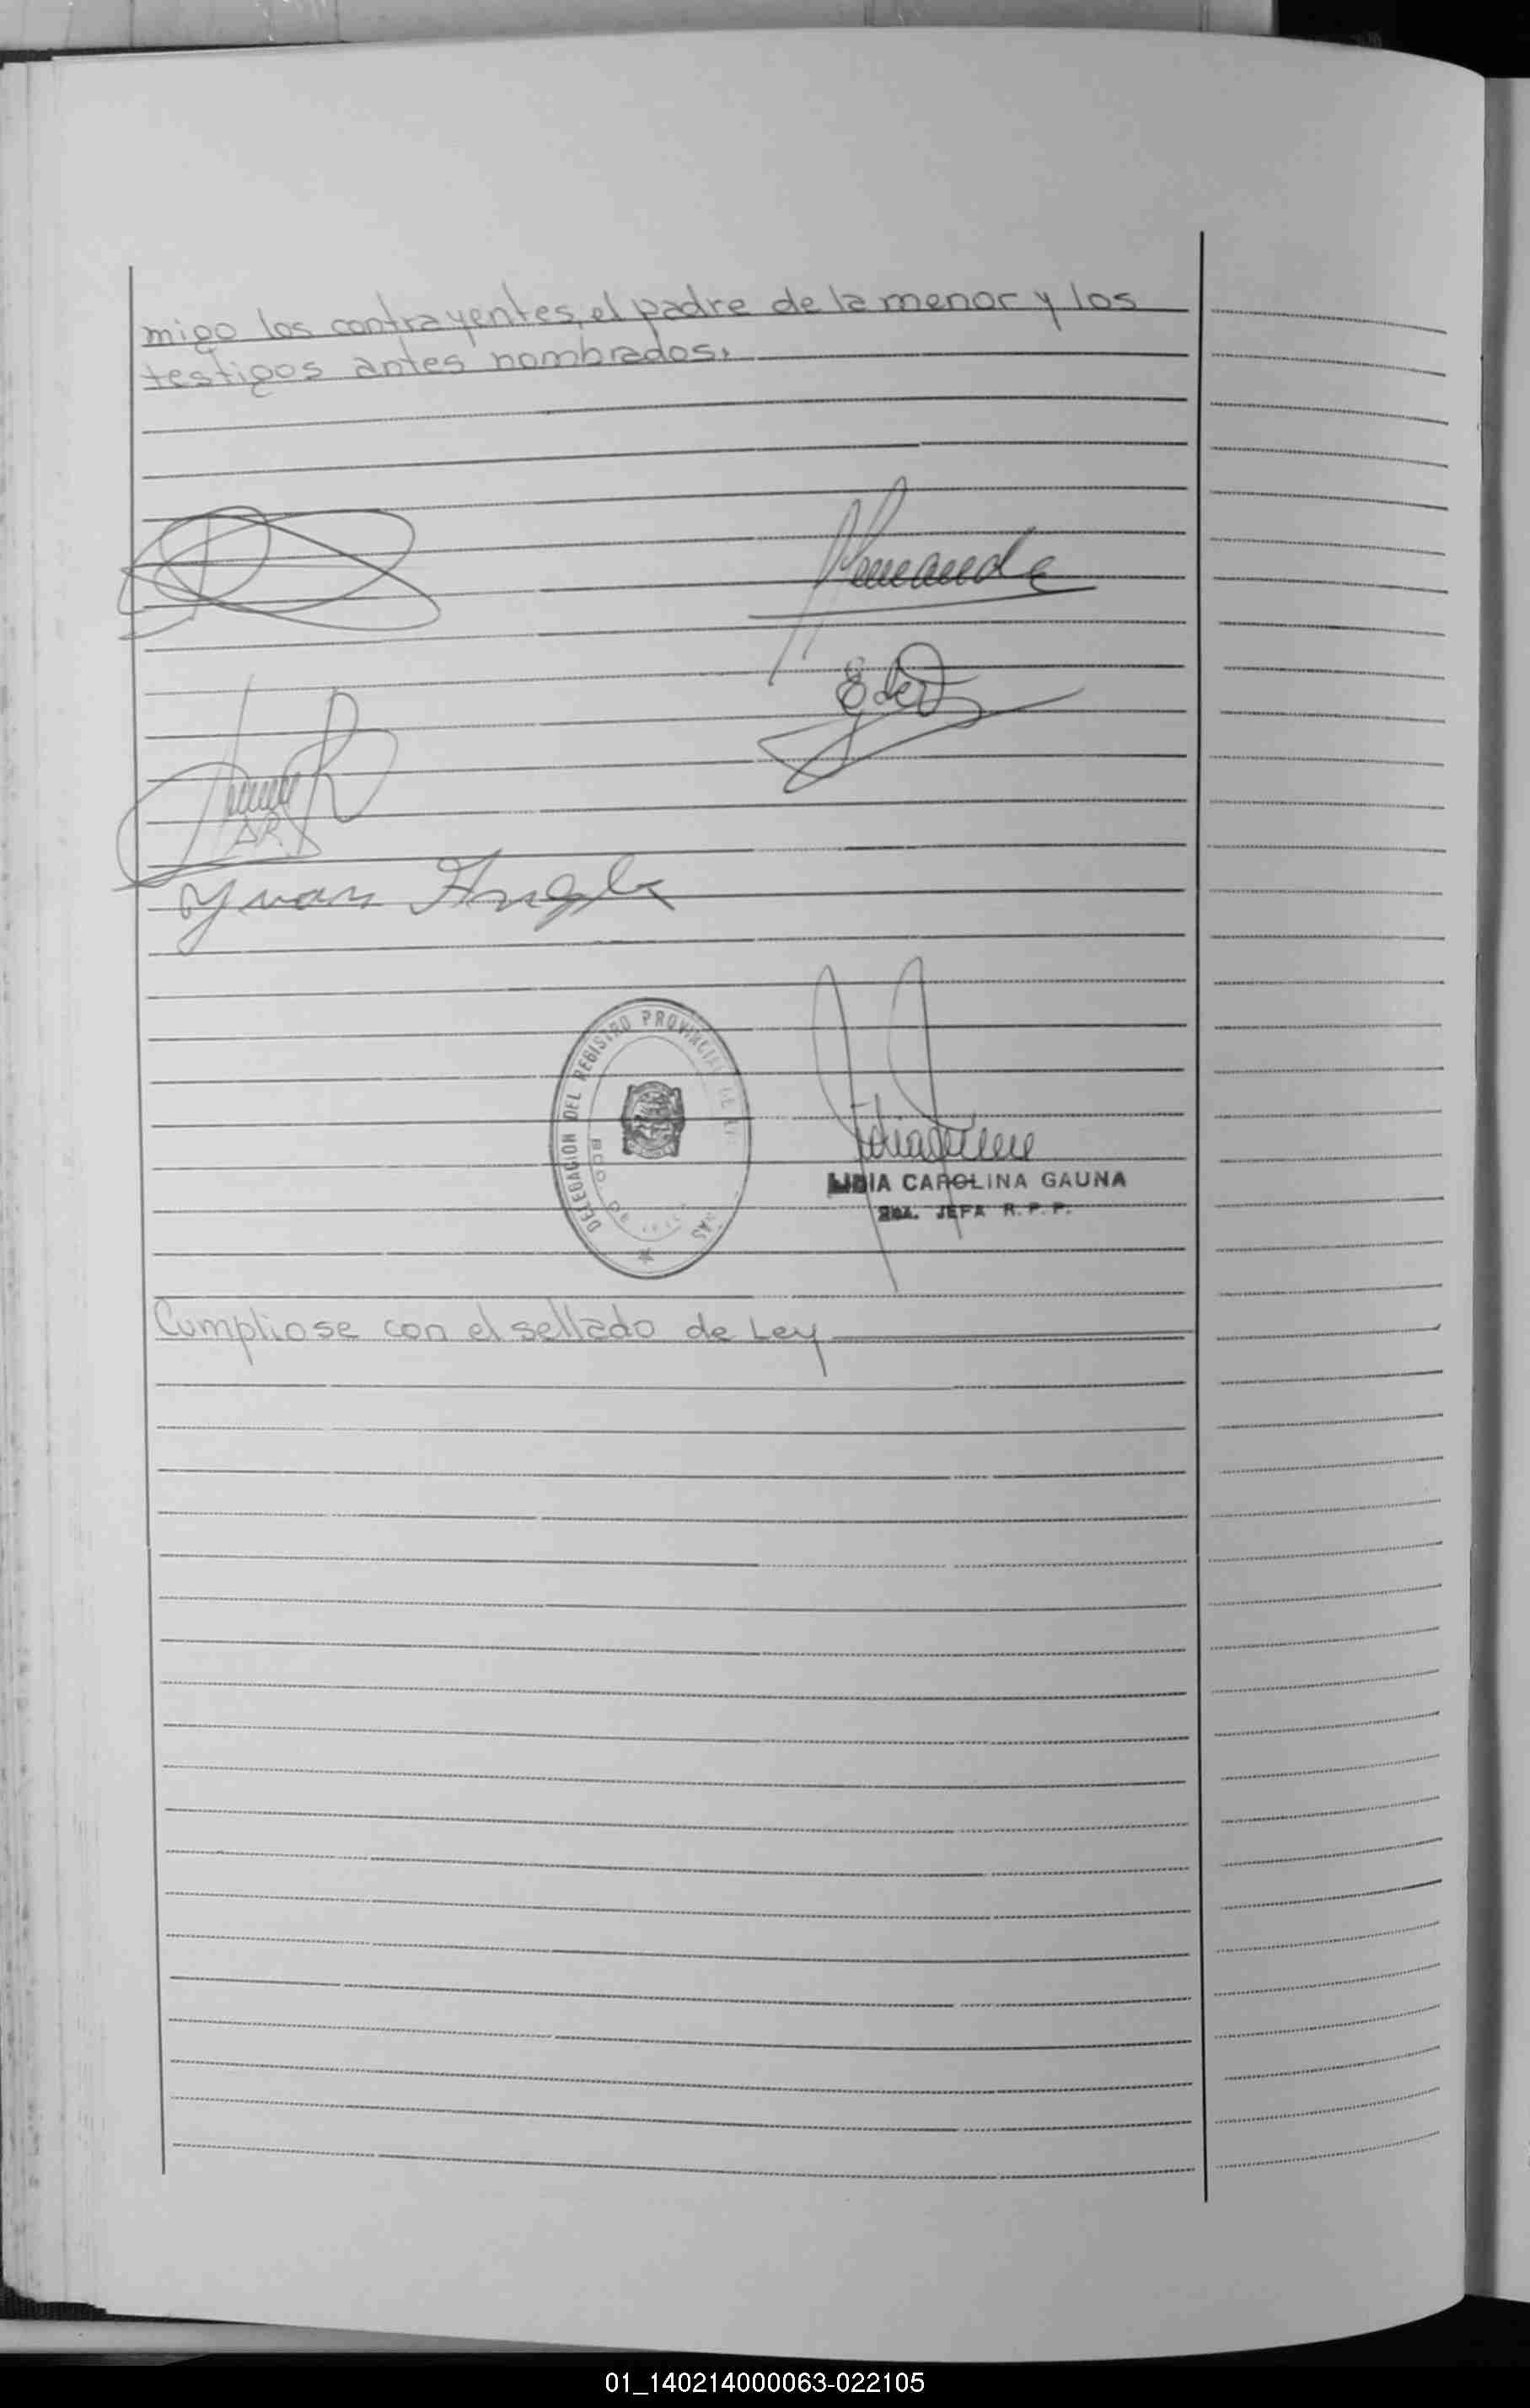 migo los contrayentes, el padre de la menor y los
testigos antes nombrados.
Juan Angel
DELEGACION DEL REGISTRO PROVINCIAL DE
LIDIA CAROLINA GAUNA
JEFA R. P. P.
Cumpliose con el sellado de Ley
01_140214000063-022105